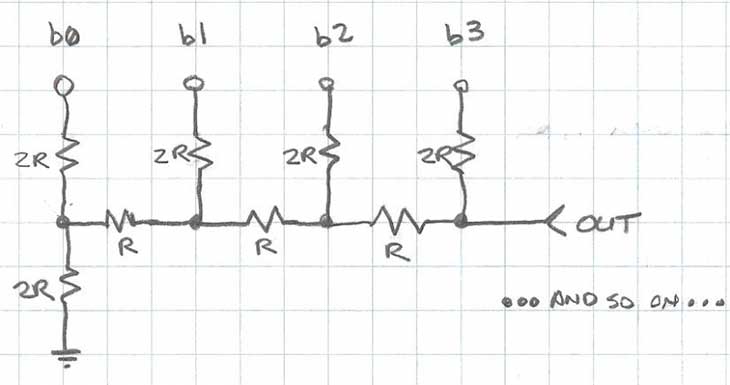 b0 b1 b2 b3
2R 2R 2R 2R
R R R
OUT
2R
... AND SO ON ...